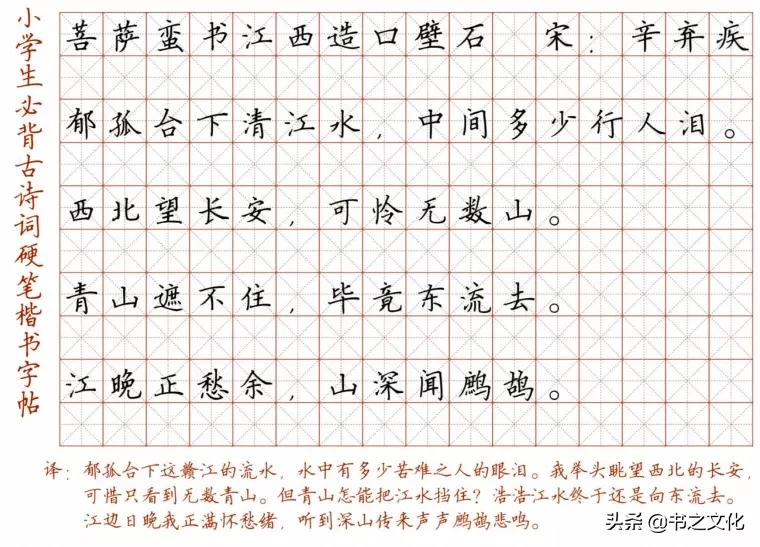 小学生必背古诗词硬笔楷书字帖
菩萨蛮书江西造口壁石 宋：辛弃疾
郁孤台下清江水，中间多少行人泪。
西北望长安，可怜无数山。
青山遮不住，毕竟东流去。
江晚正愁余，山深闻鹧鸪。
译：郁孤台下这赣江的流水，水中有多少苦难之人的眼泪。我举头眺望西北的长安，
可惜只看到无数青山。但青山怎能把江水挡住？浩浩江水终于还是向东流去。
江边日晚我正满怀愁绪，听到深山传来声声鹧鸪悲鸣。
头条 @书之文化